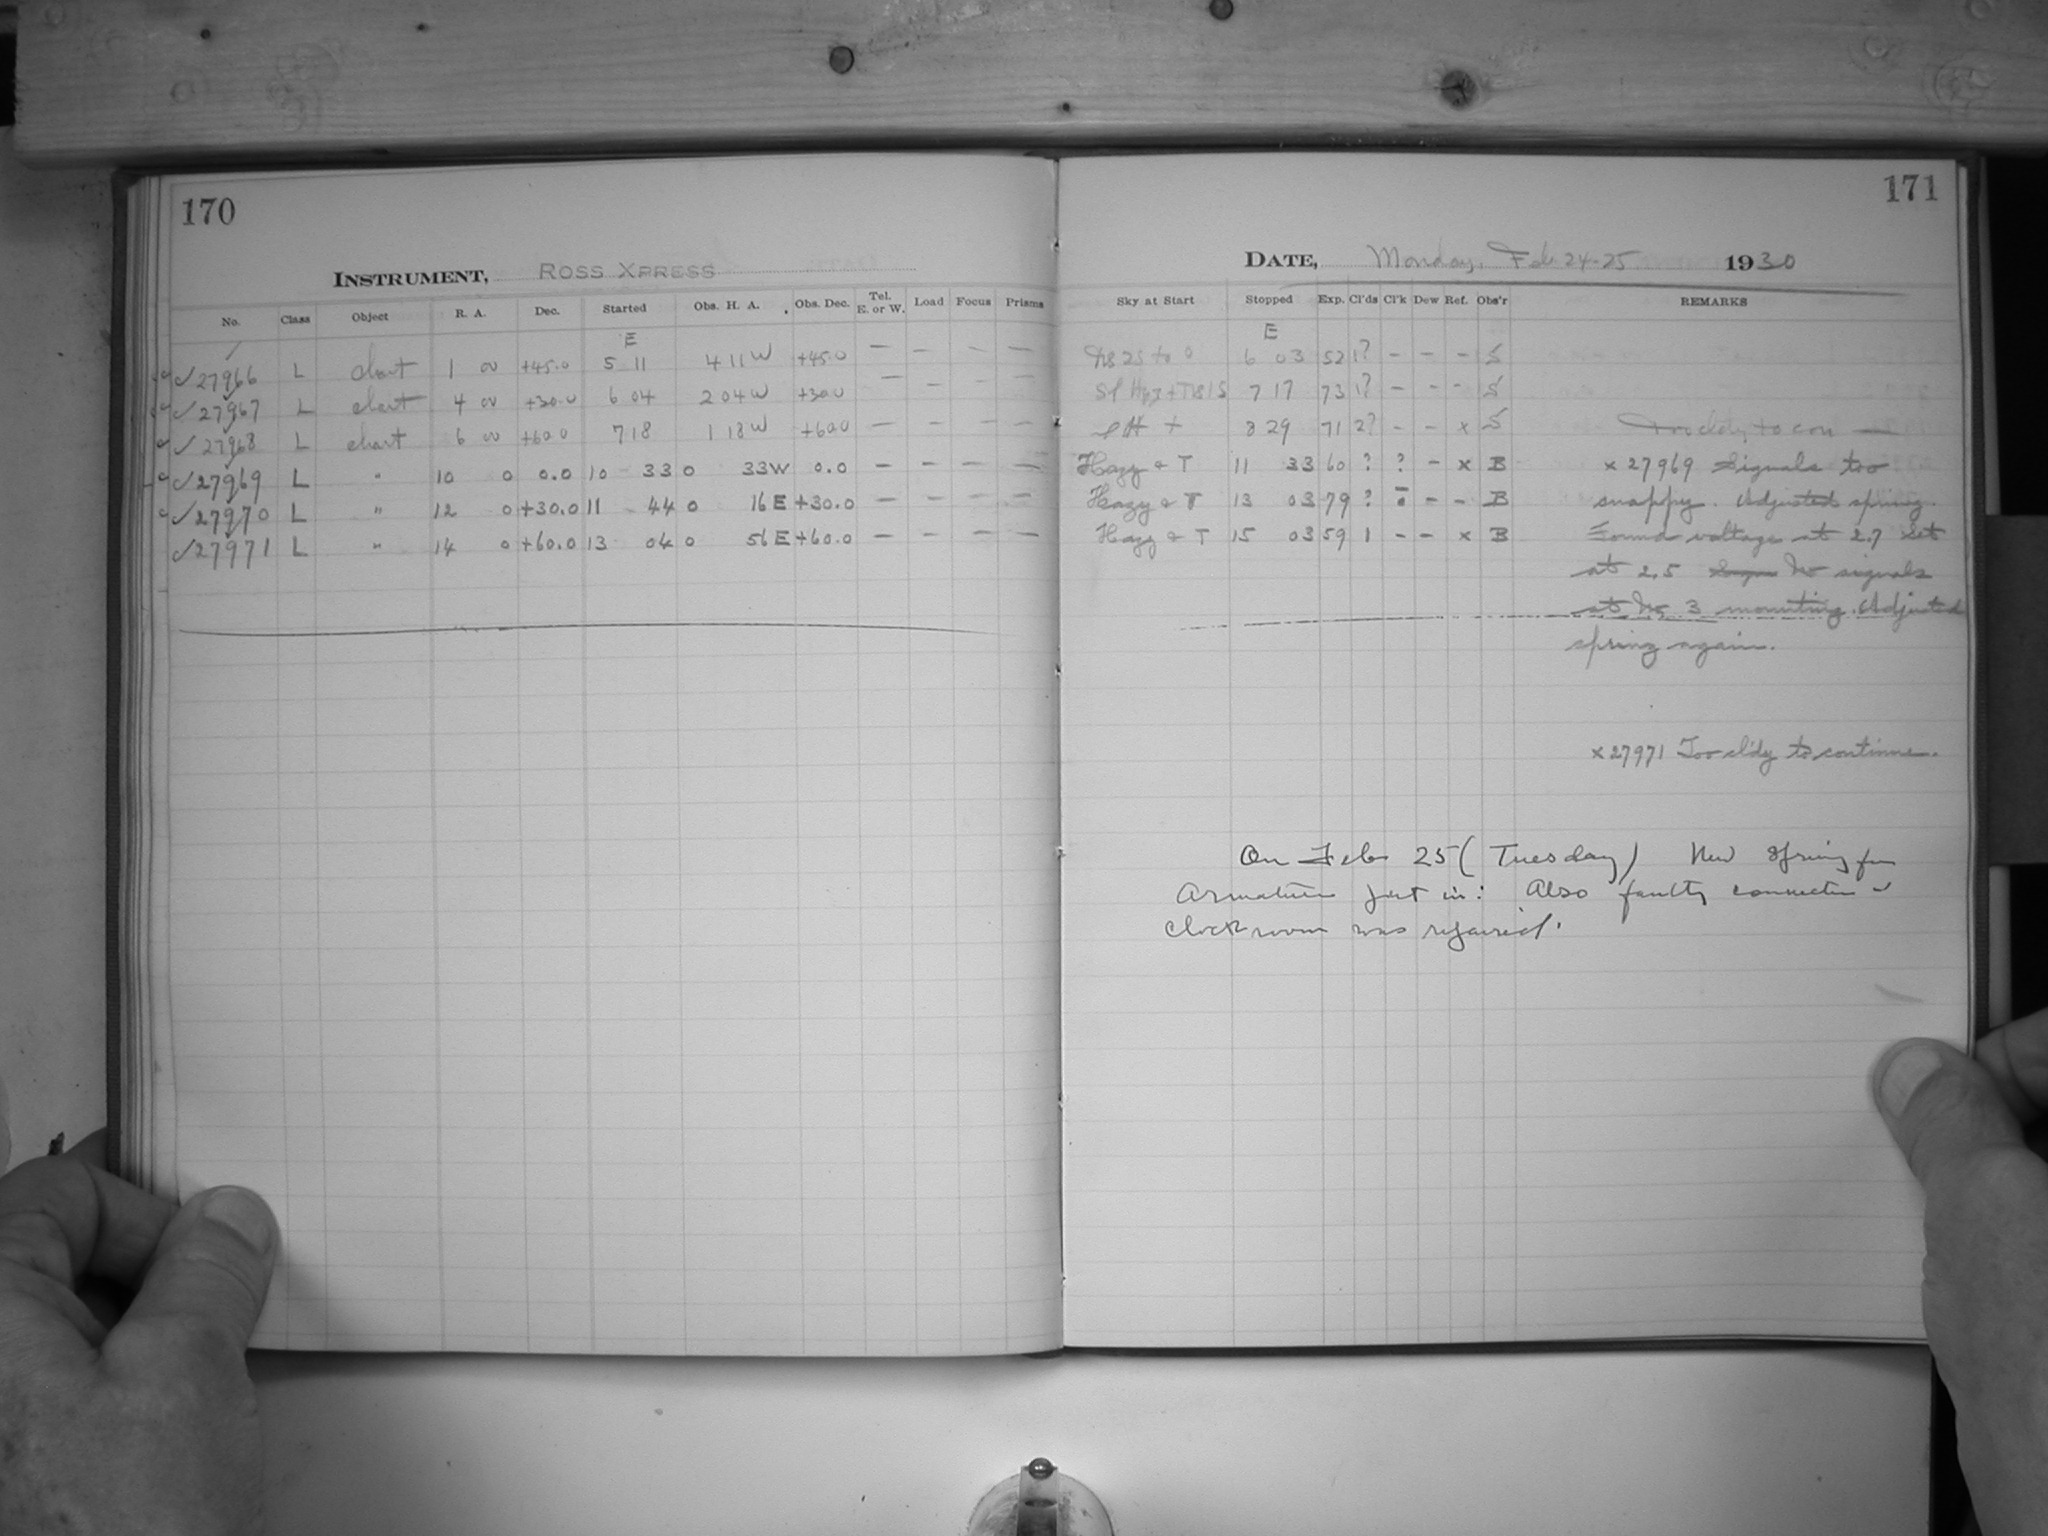 170
INSTRUMENT, ROSS XPRESS
No. Class Object R. A. Dec. Started Obs. H. A. Obs. Dec. Tel. E. or W. Load Focus Prisms
E
27966 L chart 1 00 +45.0 5 11 4 11 W +45.0 — — — —
27967 L chart 4 00 +30.0 6 04 2 04 W +30.0 — — — —
27968 L chart 6 00 +60.0 7 18 1 18 W +60.0 — — — —
27969 L " 10 0 0.0 10 33 0 33 W 0.0 — — — —
27970 L " 12 0 +30.0 11 44 0 16 E +30.0 — — — —
27971 L " 14 0 +60.0 13 04 0 56 E +60.0 — — — —
171
DATE, Monday, Feb 24-25 1930
Sky at Start Stopped Exp. Cl'ds Cl'k Dew Ref. Obs'r REMARKS
E
6 03 52 1? - - - S
7 17 73 1? - - - S
8 29 71 2? - - x S Too cldy to con —
Hazy & T 11 33 60 ? ? - x B x 27969 Signals too
Hazy & T 13 03 79 ? - - - B snappy. Adjusted spring.
Hazy & T 15 03 59 1 - - x B Found voltage at 2.7 Set
at 2.5 No signals
at No 3 mounting. Adjusted
spring again.
x 27971 Too cldy to continue.
On Feb 25 (Tuesday) New Spring for
Armature put in: Also faulty connection
clock room was repaired.